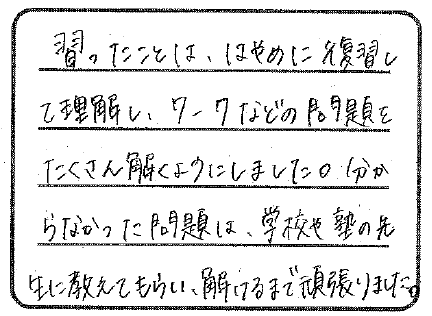 習ったことは、はやめに復習し
て理解し、ワークなどの問題を
たくさん解くようにしました。分か
らなかった問題は、学校や塾の先
生に教えてもらい、解けるまで頑張りました。